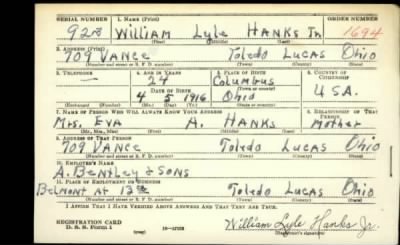 SERIAL NUMBER 1. NAME (Print) ORDER NUMBER
928 William Lyle HANKS Jr 1694
2. ADDRESS (Print)
709 VANCE Toledo LUCAS Ohio
(Number and street or R. F. D. number) (Town) (County) (State)
3. TELEPHONE 4. AGE IN YEARS 5. PLACE OF BIRTH 6. COUNTRY OF CITIZENSHIP
24 Columbus
DATE OF BIRTH
4 5 1916 Ohio U.S.A.
(Exchange) (Number) (Mo.) (Day) (Yr.) (State or country)
7. NAME OF PERSON WHO WILL ALWAYS KNOW YOUR ADDRESS 8. RELATIONSHIP OF THAT PERSON
Mrs. EVA A. HANKS Mother
(Mr., Mrs., Miss) (First) (Middle) (Last)
9. ADDRESS OF THAT PERSON
709 VANCE Toledo LUCAS Ohio
(Number and street or R. F. D. number) (Town) (County) (State)
10. EMPLOYER'S NAME
A. Bentley & Sons
11. PLACE OF EMPLOYMENT OR BUSINESS
Belmont At 12th Toledo LUCAS Ohio
(Number and street or R. F. D. number) (Town) (County) (State)
I AFFIRM THAT I HAVE VERIFIED ABOVE ANSWERS AND THAT THEY ARE TRUE.
REGISTRATION CARD
D. S. S. Form 1 William Lyle Hanks Jr.
(Registrant's signature)